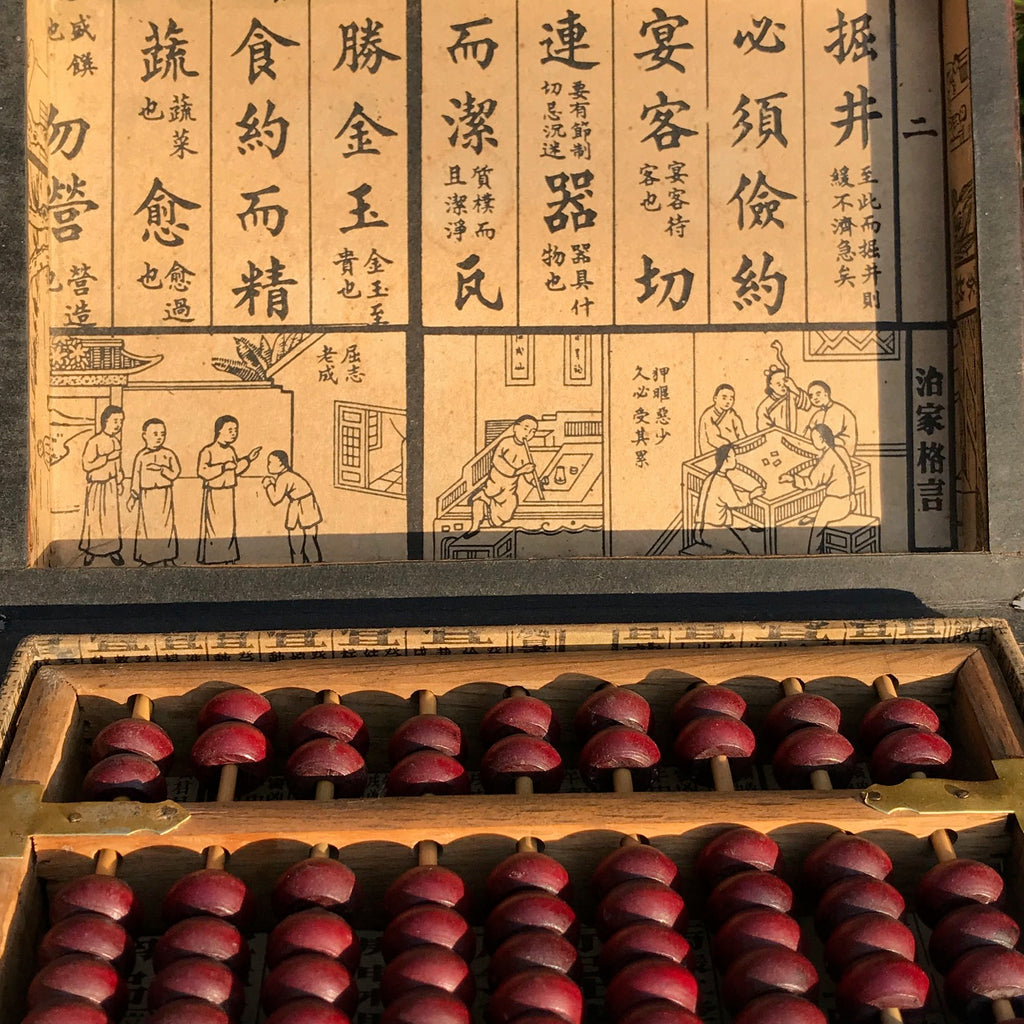 二
治家格言
掘井至此而掘井則緩不濟急矣
必須儉約
宴客宴客待客也切
連要有節制切忌沉迷器器具什物也
而潔質樸而且潔淨瓦
勝金玉金玉至貴也
食約而精
蔬蔬菜也愈愈過也
盛饌也勿營營造也
狎暱惡少
久必受其累
屈志
老成